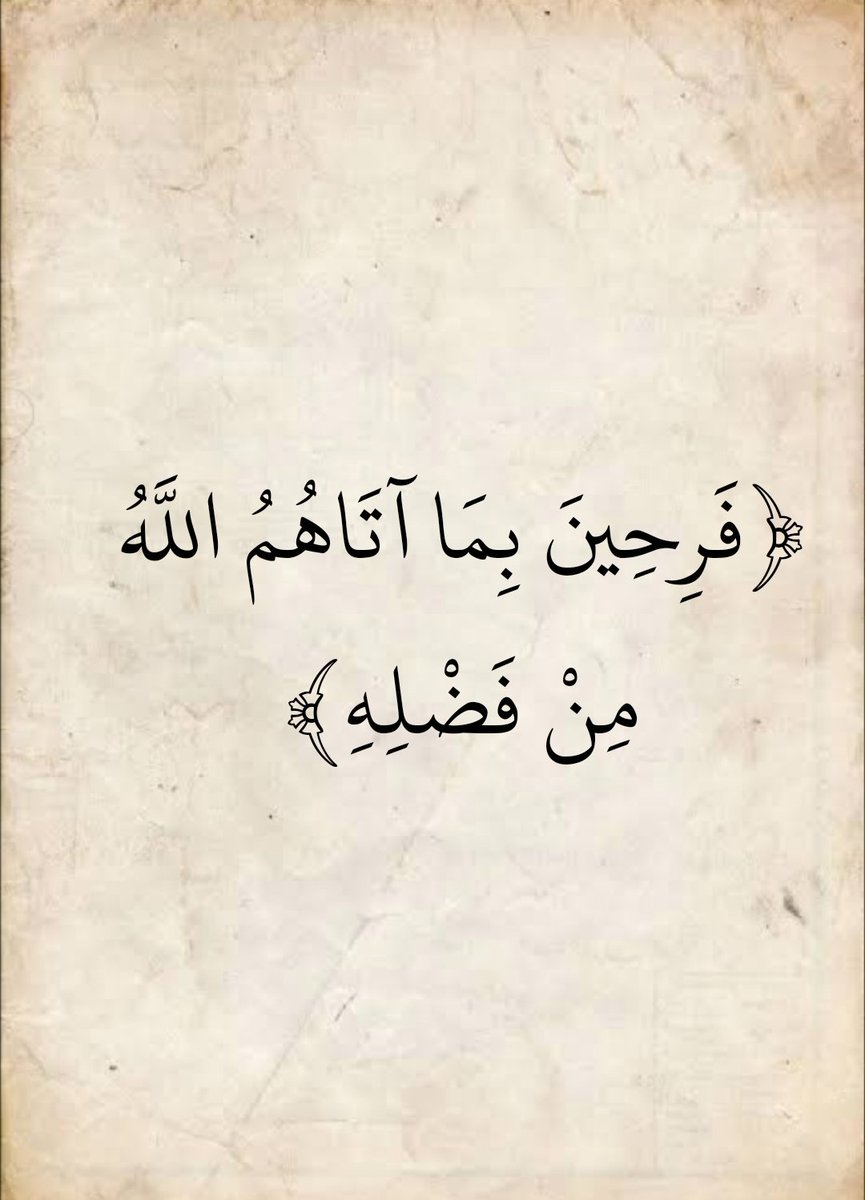 ﴿فَرِحِينَ بِمَا آتَاهُمُ اللَّهُ
مِنْ فَضْلِهِ﴾